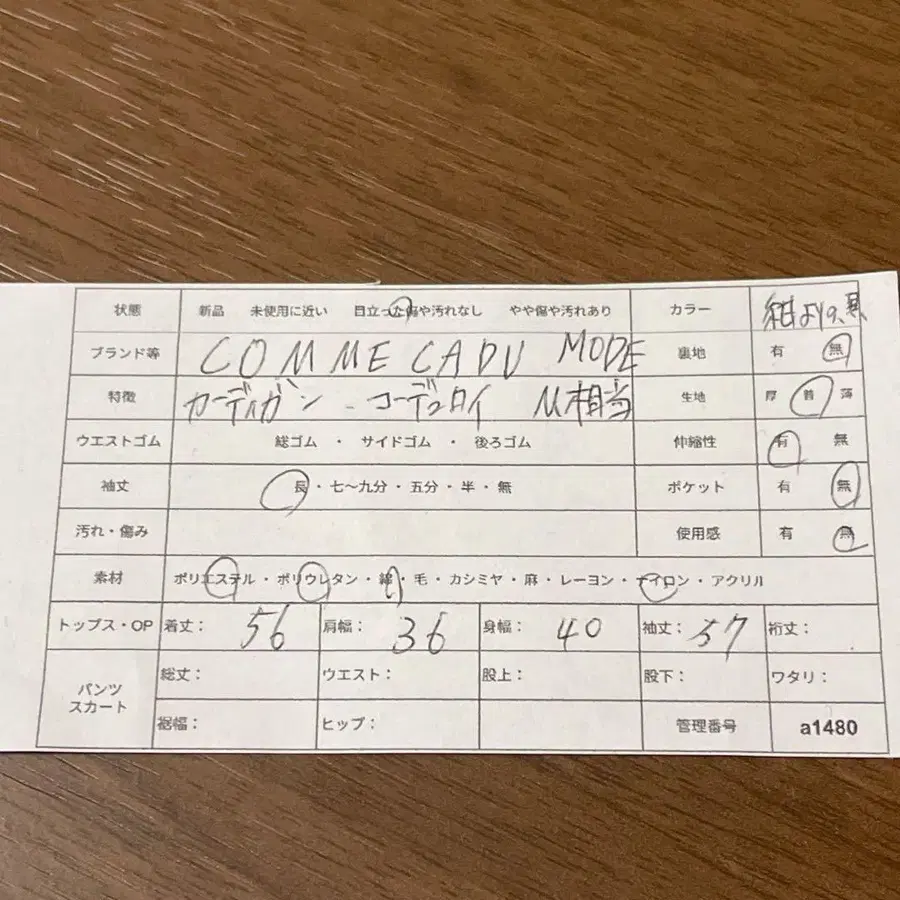 状態 新品 未使用に近い 目立った傷や汚れなし やや傷や汚れあり カラー 紺よりの、黒
ブランド等 COMME CADU MODE 裏地 有 無
特徴 カーディガン コーデュロイ M相当 生地 厚 普 薄
ウエストゴム 総ゴム ・ サイドゴム ・ 後ろゴム 伸縮性 有 無
袖丈 長・七〜九分・五分・半・無 ポケット 有 無
汚れ・傷み 使用感 有 無
素材 ポリエステル・ポリウレタン・綿・毛・カシミヤ・麻・レーヨン・ナイロン・アクリル
トップス・OP 着丈: 56 肩幅: 36 身幅: 40 袖丈: 57 裄丈:
パンツ スカート 総丈: ウエスト: 股上: 股下: ワタリ:
裾幅: ヒップ: 管理番号 a1480